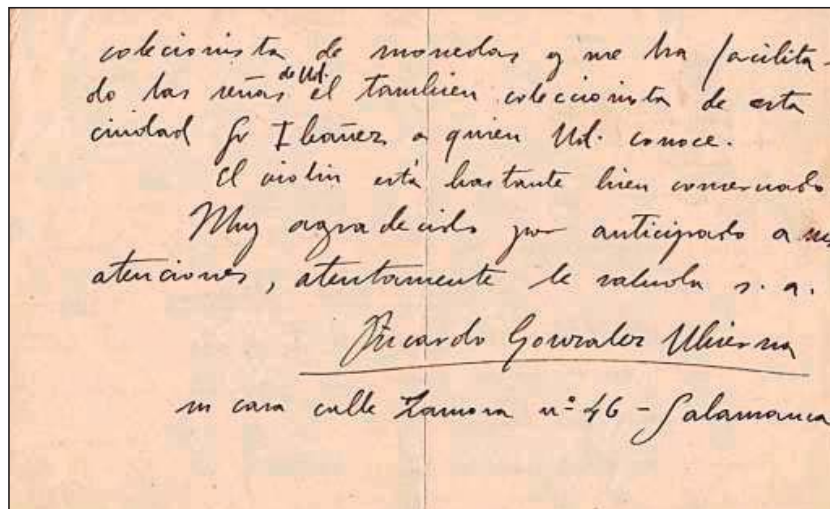 colecionista de monedas y me ha facilita-
do las señas de Ud. el tambien coleccionista de esta
ciudad Sr Ibañez a quien Ud. conoce.
El violin está bastante bien conservado
Muy agradecido por anticipado a sus
atenciones, atentamente le saluda s. a.
Ricardo Gonzalez Ubierna
su casa calle Zamora nº 46 - Salamanca